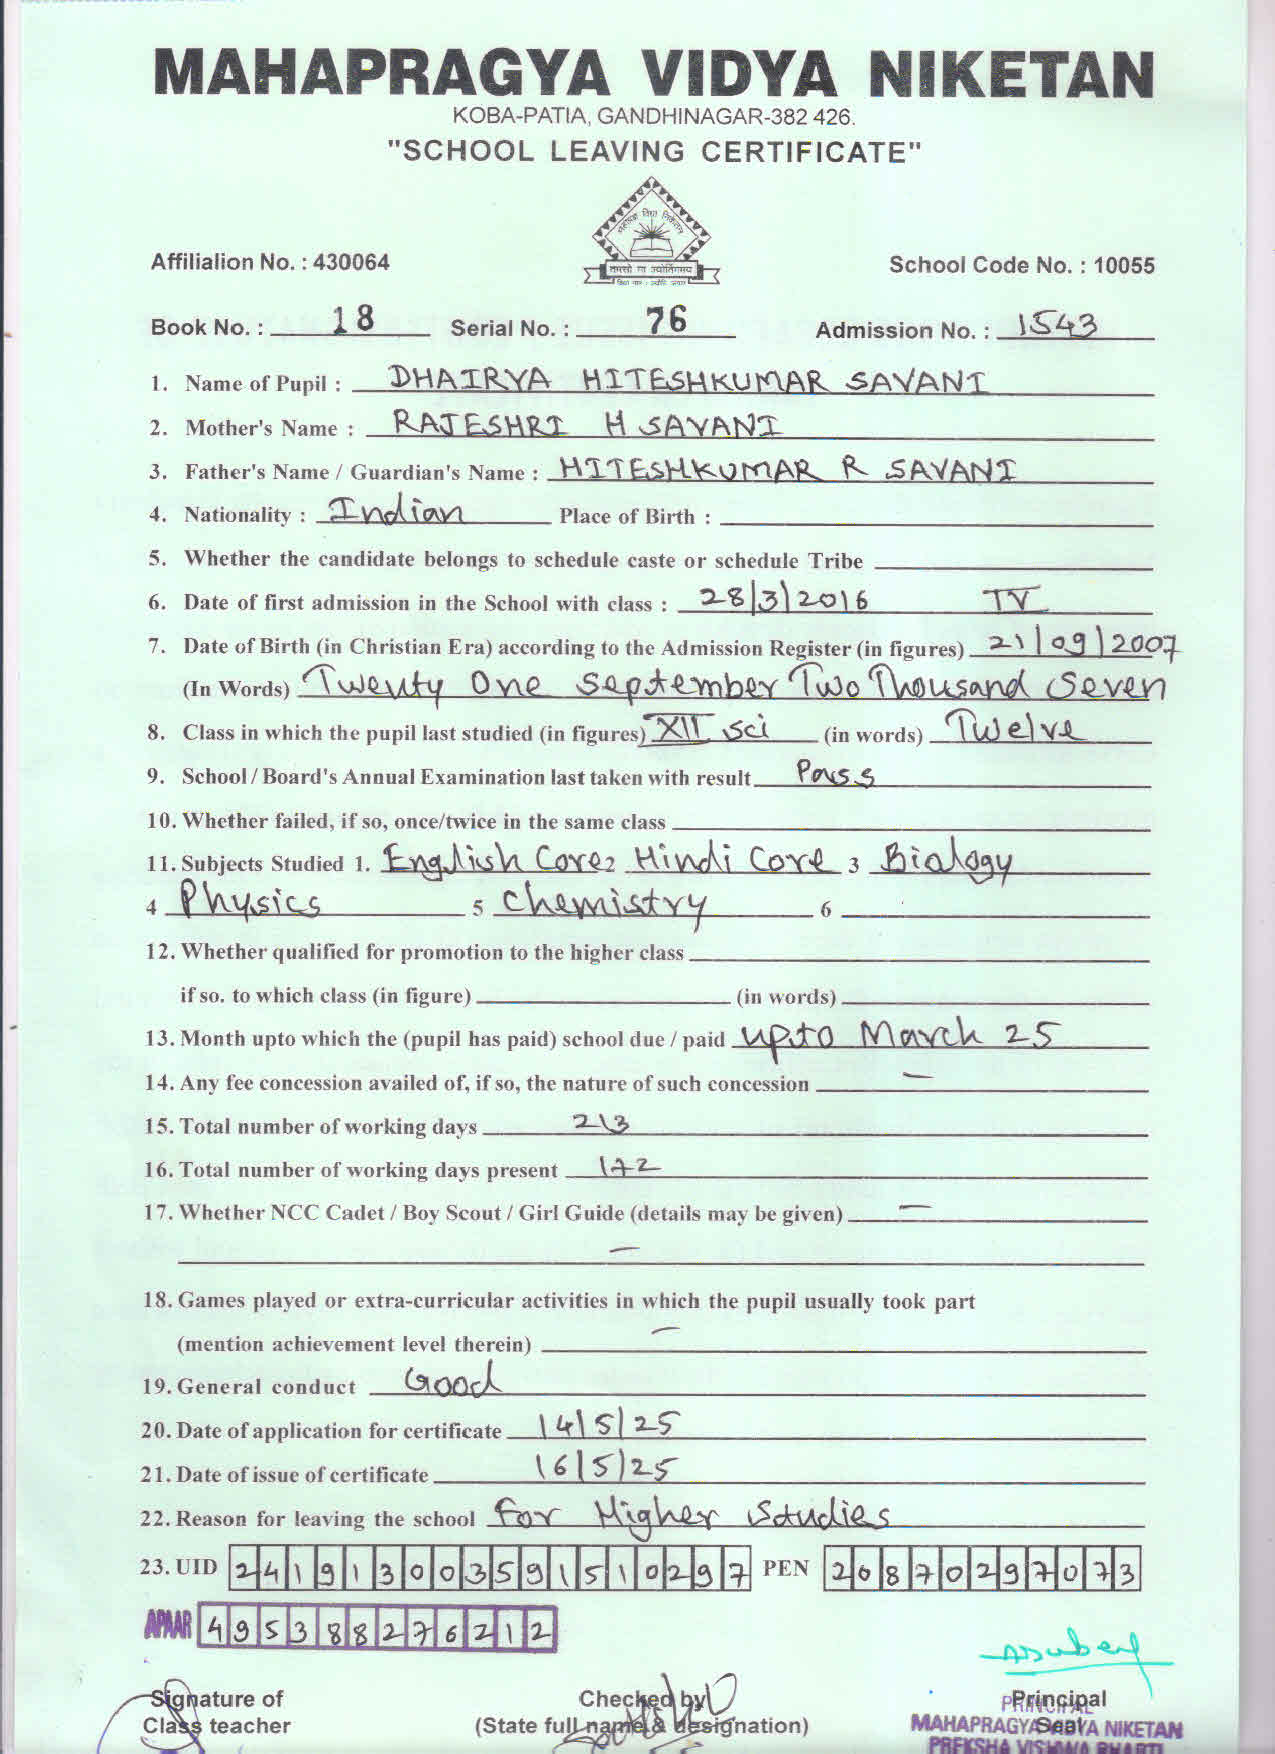 MAHAPRAGYA VIDYA NIKETAN
KOBA-PATIA, GANDHINAGAR-382 426.
"SCHOOL LEAVING CERTIFICATE"
महाप्रज्ञ विद्या निकेतन
तमसो मा ज्योतिर्गमय
Affilialion No. : 430064 School Code No. : 10055
Book No. : 18 Serial No. : 76 Admission No. : 1543
1. Name of Pupil : DHAIRYA HITESHKUMAR SAVANI
2. Mother's Name : RAJESHRI H SAVANI
3. Father's Name / Guardian's Name : HITESHKUMAR R SAVANI
4. Nationality : Indian Place of Birth :
5. Whether the candidate belongs to schedule caste or schedule Tribe
6. Date of first admission in the School with class : 28/3/2016 IV
7. Date of Birth (in Christian Era) according to the Admission Register (in figures) 21/09/2007
(In Words) Twenty One September Two Thousand Seven
8. Class in which the pupil last studied (in figures) XII sci (in words) Twelve
9. School / Board's Annual Examination last taken with result Pass
10. Whether failed, if so, once/twice in the same class
11. Subjects Studied 1. English Core 2 Hindi Core 3 Biology
4 Physics 5 Chemistry 6
12. Whether qualified for promotion to the higher class
if so. to which class (in figure) (in words)
13. Month upto which the (pupil has paid) school due / paid upto March 25
14. Any fee concession availed of, if so, the nature of such concession —
15. Total number of working days 213
16. Total number of working days present 172
17. Whether NCC Cadet / Boy Scout / Girl Guide (details may be given) —
—
18. Games played or extra-curricular activities in which the pupil usually took part
(mention achievement level therein) —
19. General conduct Good
20. Date of application for certificate 14/5/25
21. Date of issue of certificate 16/5/25
22. Reason for leaving the school For Higher Studies
23. UID 241913003591510297 PEN 20870297073
APAAR 495388276212
Signature of Checked by Principal
Class teacher (State full name & designation) Seal
PRINCIPAL
MAHAPRAGYA VIDYA NIKETAN
PREKSHA VISHWA BHARTI